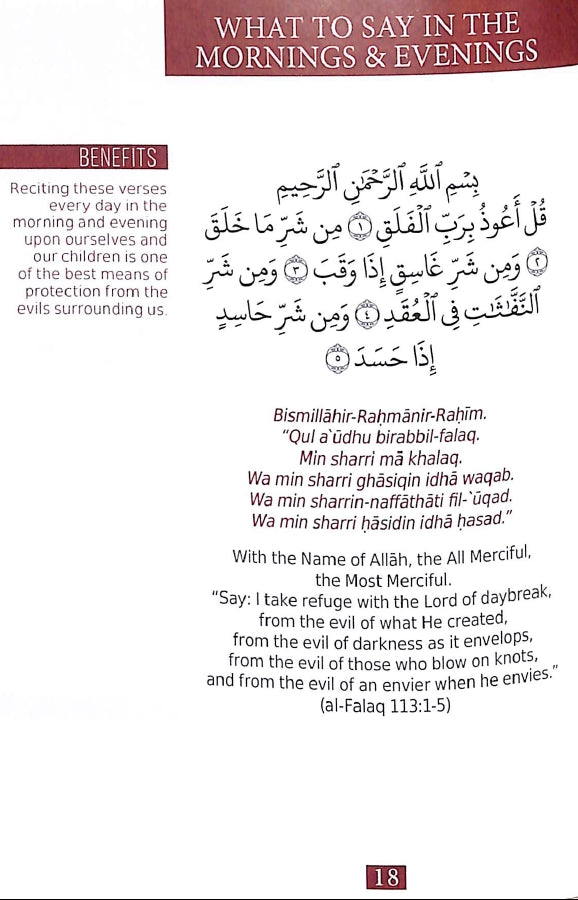 WHAT TO SAY IN THE
MORNINGS & EVENINGS
BENEFITS
Reciting these verses
every day in the
morning and evening
upon ourselves and
our children is one
of the best means of
protection from the
evils surrounding us.
بِسْمِ ٱللَّهِ ٱلرَّحْمَٰنِ ٱلرَّحِيمِ
قُلْ أَعُوذُ بِرَبِّ ٱلْفَلَقِ ١ مِن شَرِّ مَا خَلَقَ
٢ وَمِن شَرِّ غَاسِقٍ إِذَا وَقَبَ ٣ وَمِن شَرِّ
ٱلنَّفَّٰثَٰتِ فِى ٱلْعُقَدِ ٤ وَمِن شَرِّ حَاسِدٍ
إِذَا حَسَدَ ٥
Bismillāhir-Raḥmānir-Raḥīm.
“Qul a`ūdhu birabbil-falaq.
Min sharri mā khalaq.
Wa min sharri ghāsiqin idhā waqab.
Wa min sharrin-naffāthāti fil-`ūqad.
Wa min sharri ḥāsidin idhā ḥasad.”
With the Name of Allāh, the All Merciful,
the Most Merciful.
“Say: I take refuge with the Lord of daybreak,
from the evil of what He created,
from the evil of darkness as it envelops,
from the evil of those who blow on knots,
and from the evil of an envier when he envies.”
(al-Falaq 113:1-5)
18